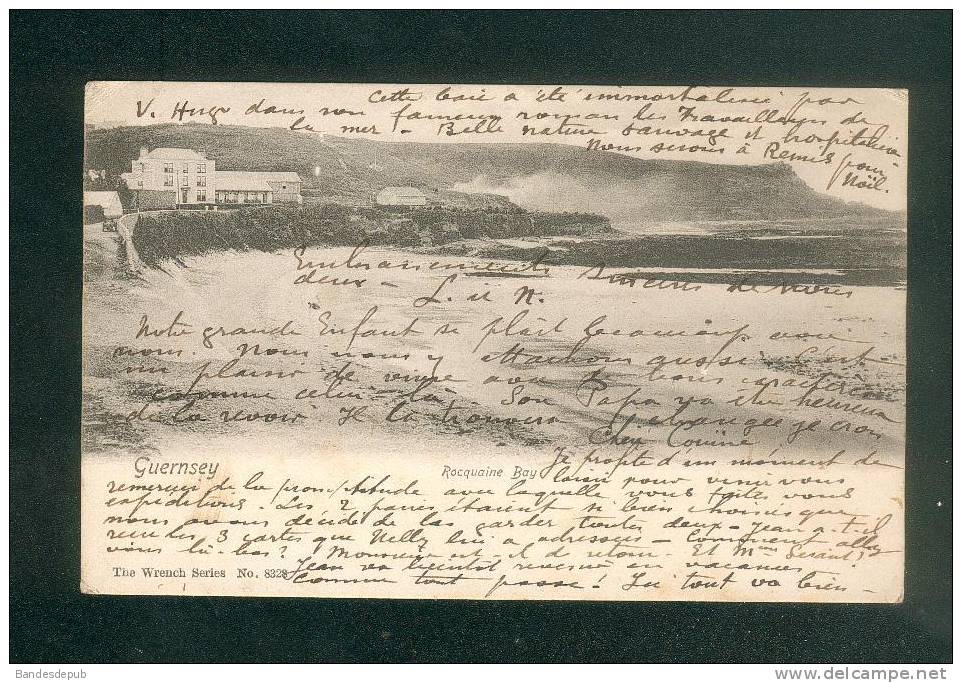 Cette baie a été immortalisée par
V. Hugo dans son fameux roman les Travailleurs de
la mer - Belle nature sauvage et hospitalière
Nous serons à Rennes pour
Noël.
Embrassements sincères de nous
deux - L. et N.
Notre grande Enfant se plait beaucoup avec
nous. Nous nous y attachons aussi. C'est
un plaisir de vivre avec de bons caractères
comme celui-là. Son Papa va être heureux
de la revoir. Il la trouvera changée je crois
Chère Cousine
Je profite d'un moment de
Guernsey
Rocquaine Bay
loisir pour venir vous
remercier de la promptitude avec laquelle vous faites vos
expéditions. Les 2 paires étaient si bien choisies que
nous avons décidé de les garder toutes deux - Jean a-t-il
reçu les 3 cartes que Nelly lui a adressées - Comment allez
vous là-bas? Monsieur est-il de retour. Et Mme
Jean va bientôt revenir en vacances
The Wrench Series No. 8328
Comme tout passe! Ici tout va bien -
Bandesdepub
http://www.delcampe.net